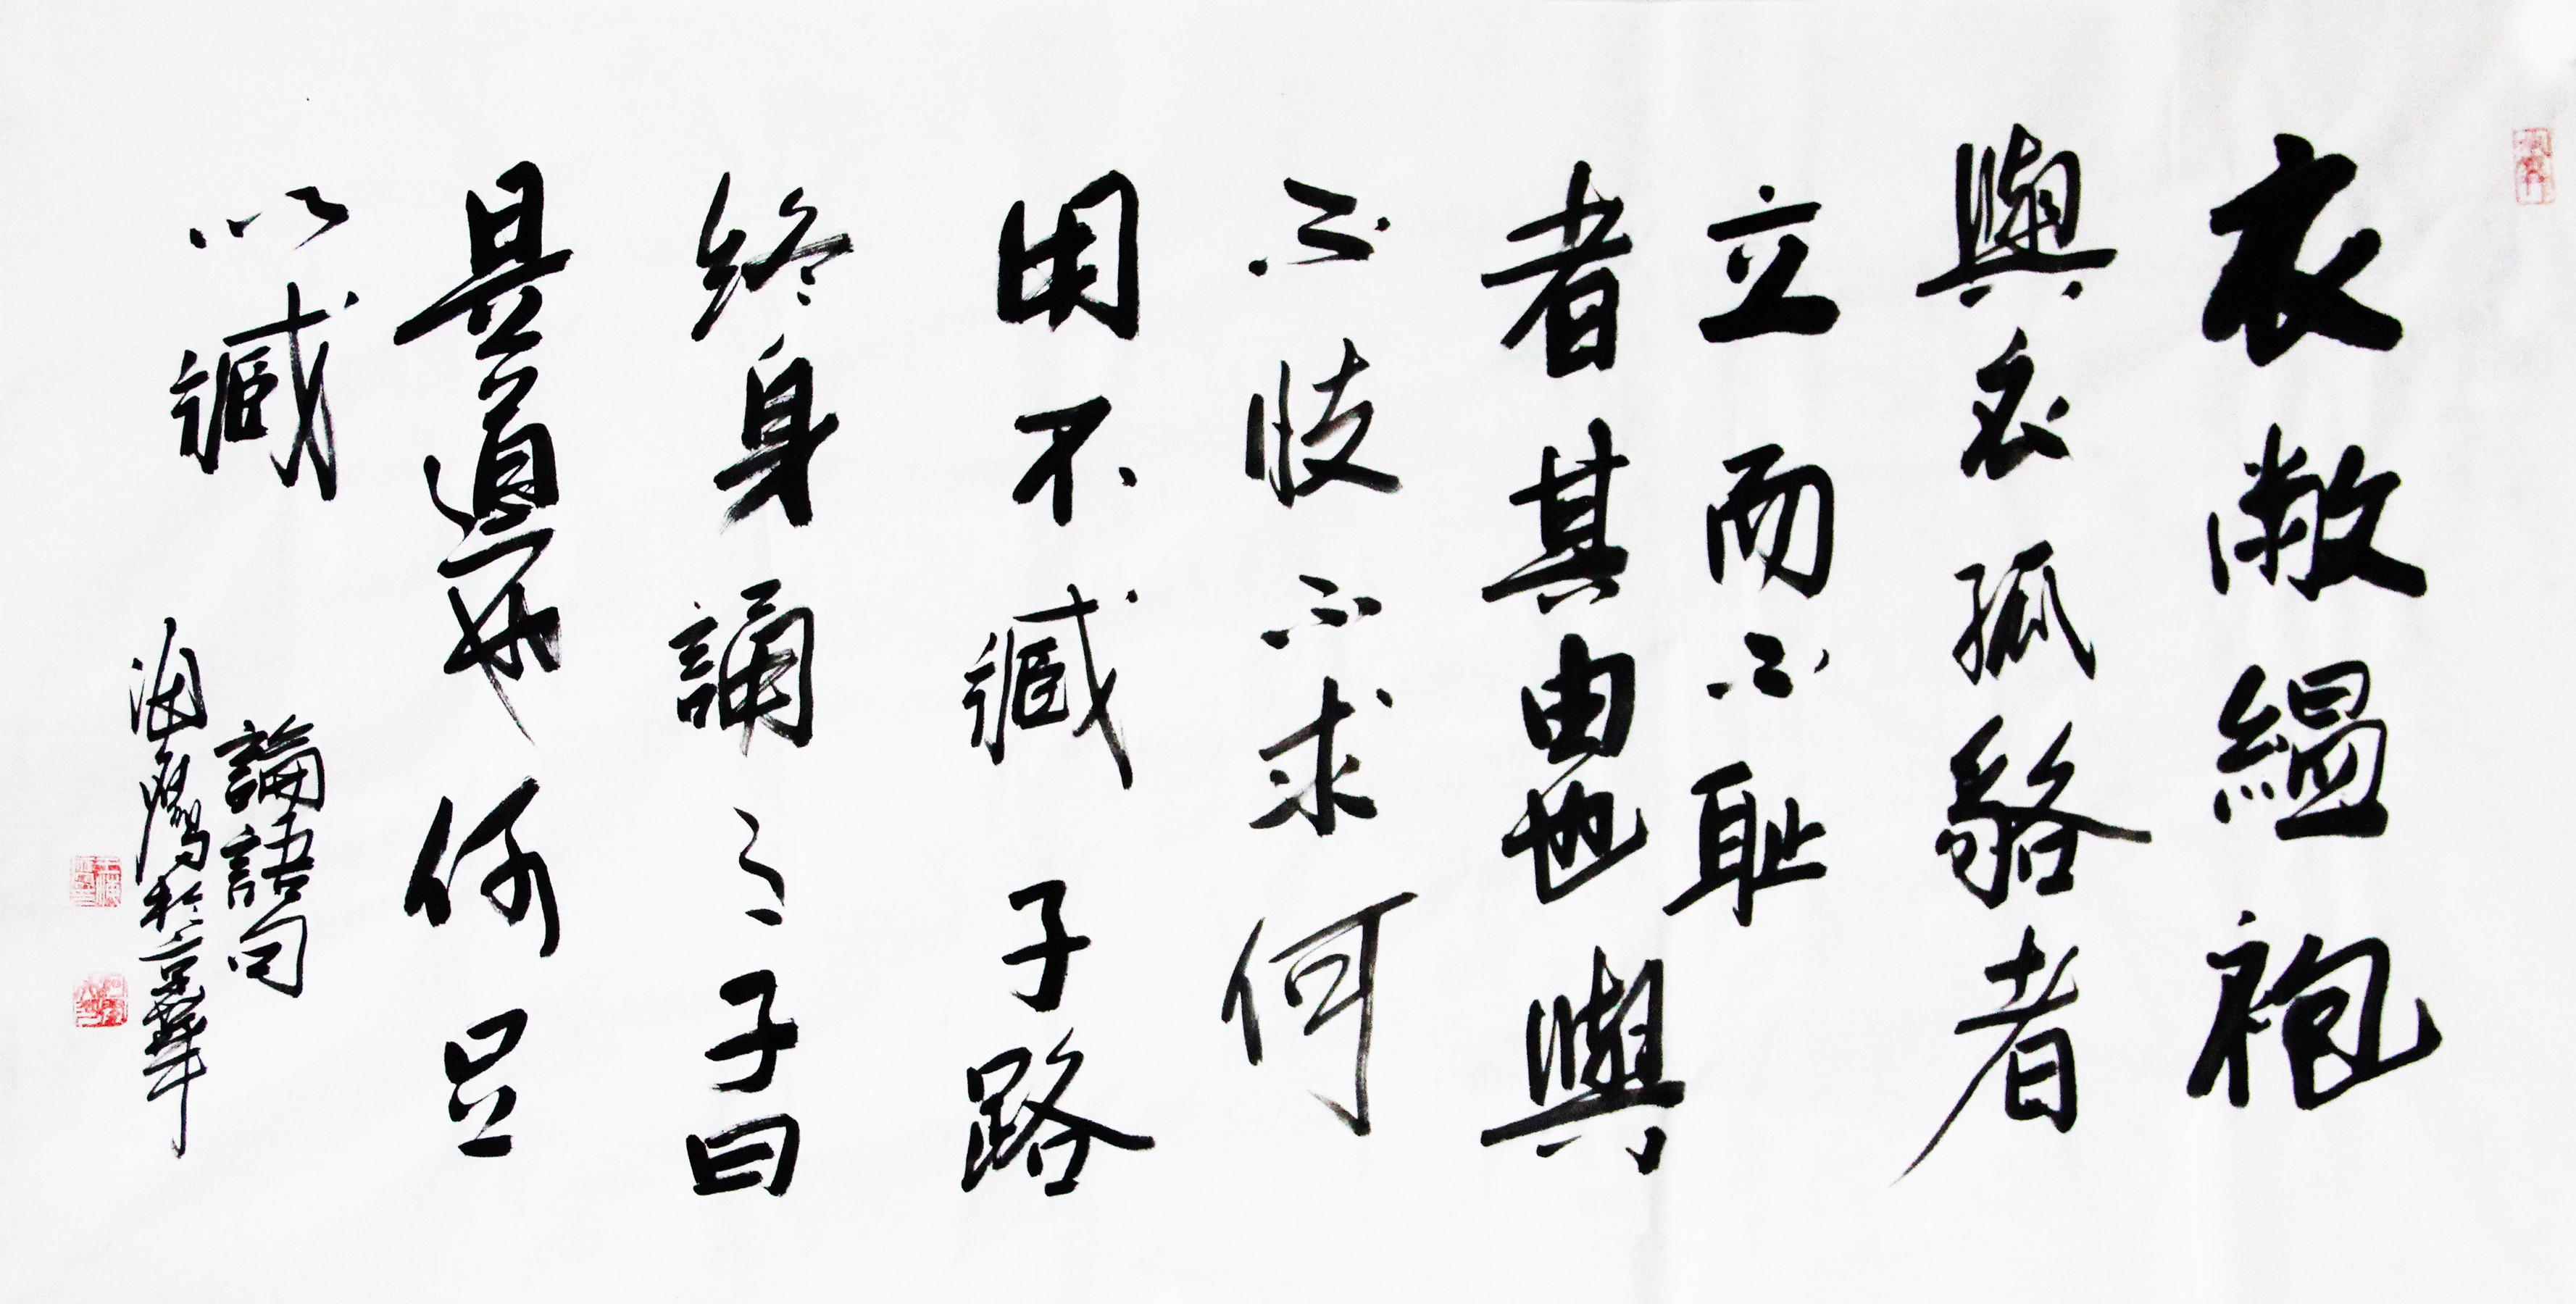 衣敝縕袍
與衣狐貉者
立而不耻
者其由也與
不忮不求何
用不臧子路
終身誦之子曰
是道也何足
以臧
論語句
於京華